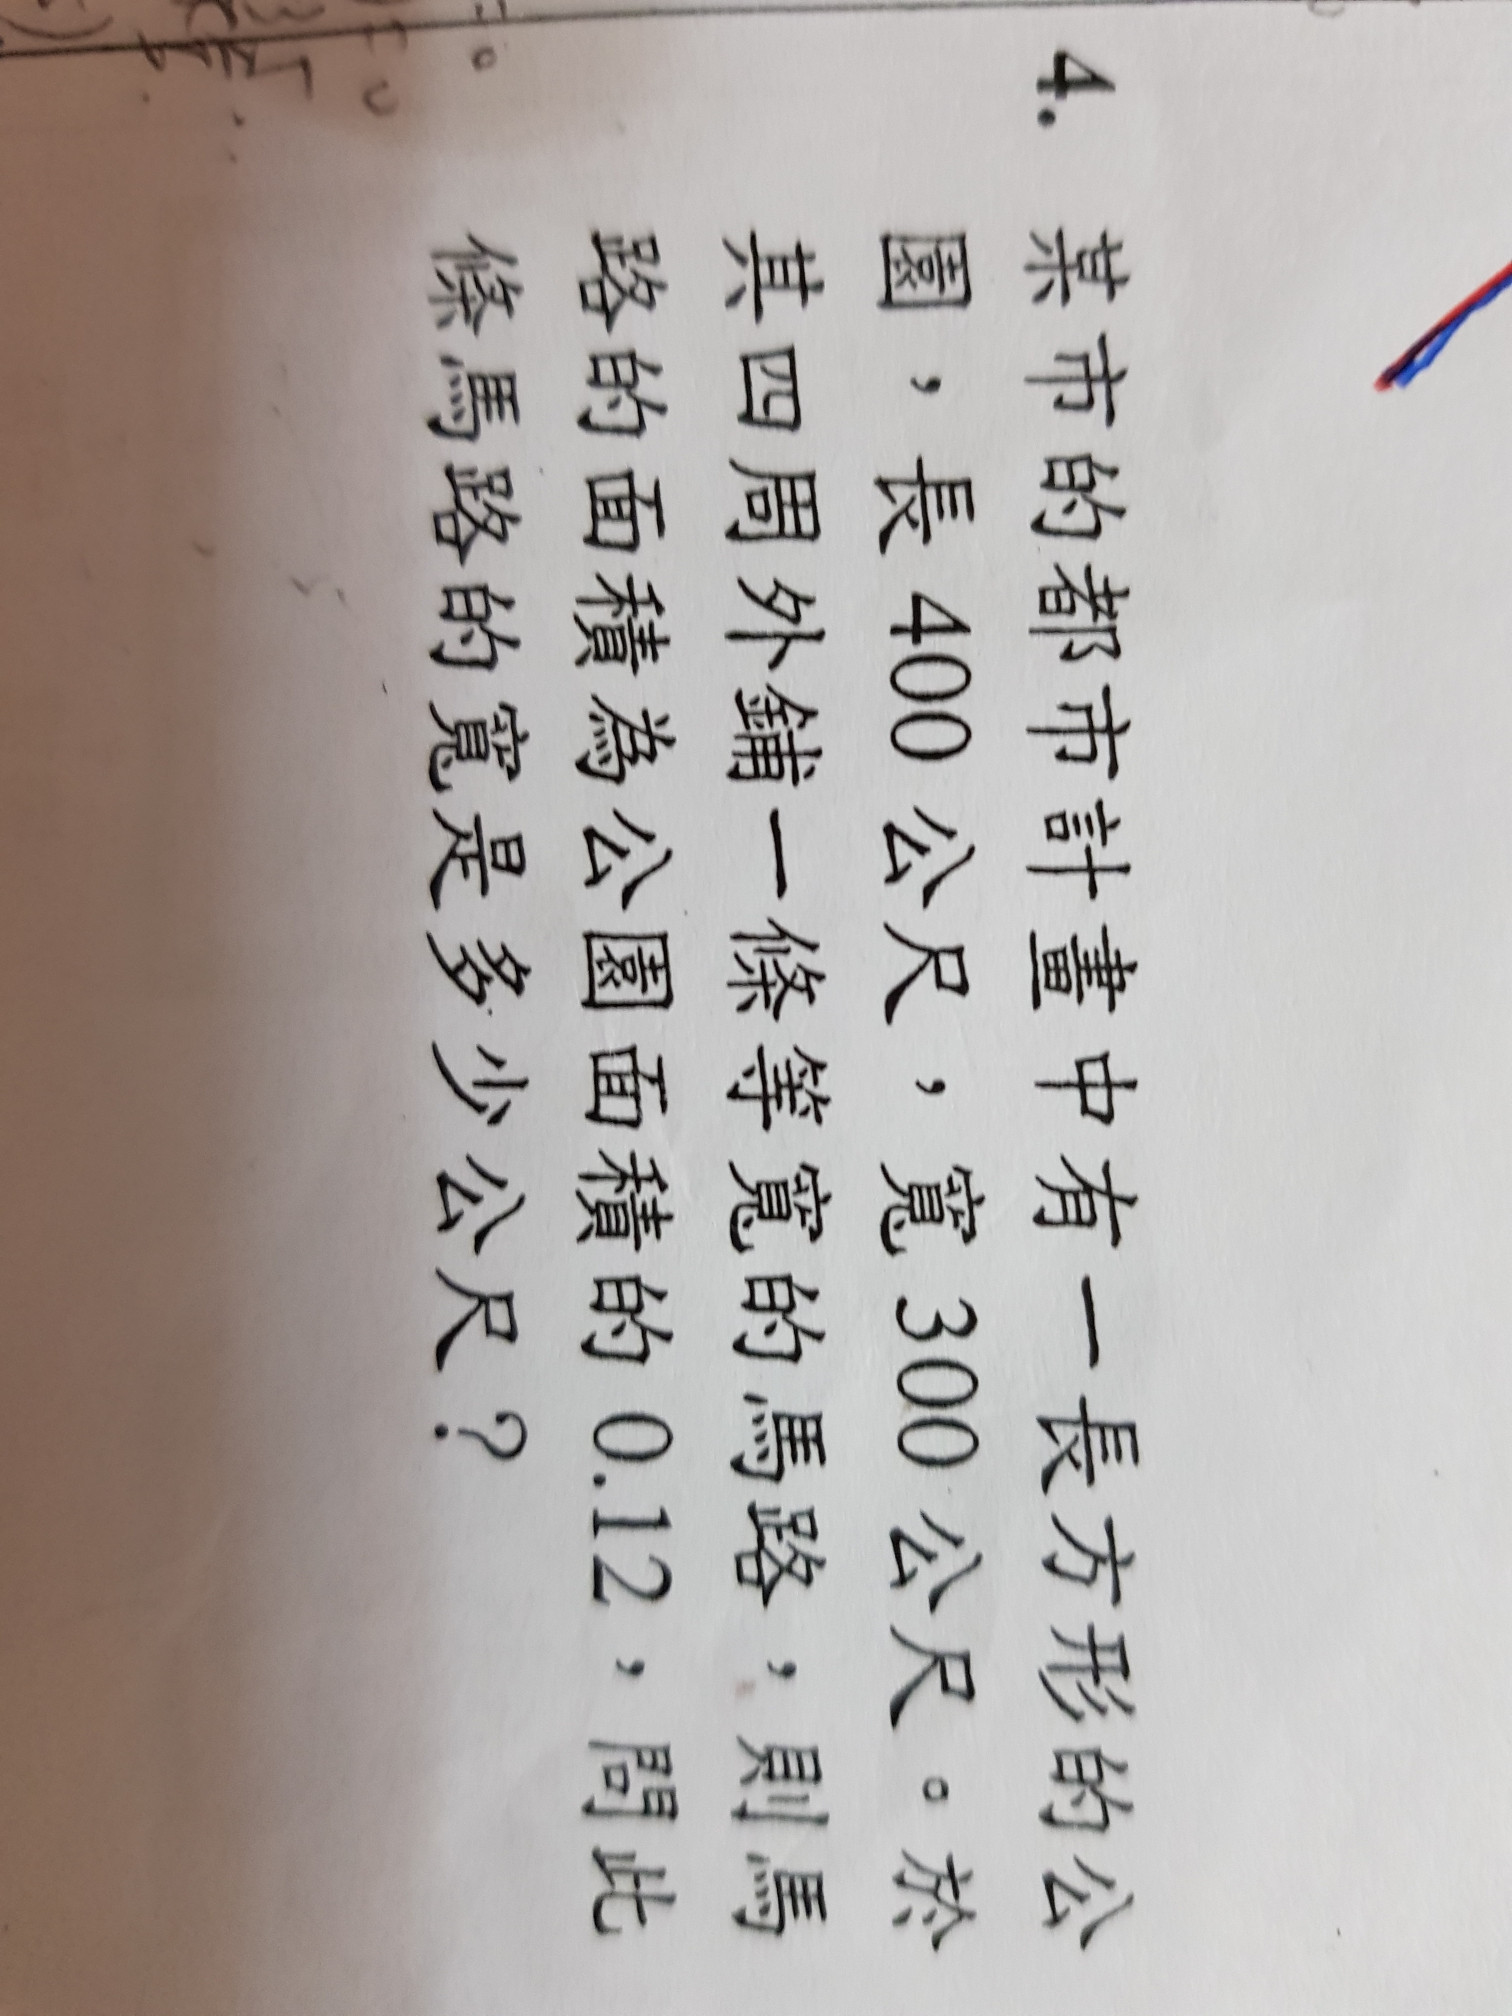 4. 某市的都市計畫中有一長方形的公
園，長 400 公尺，寬 300 公尺。於
其四周外鋪一條等寬的馬路，則馬
路的面積為公園面積的 0.12，問此
條馬路的寬是多少公尺？